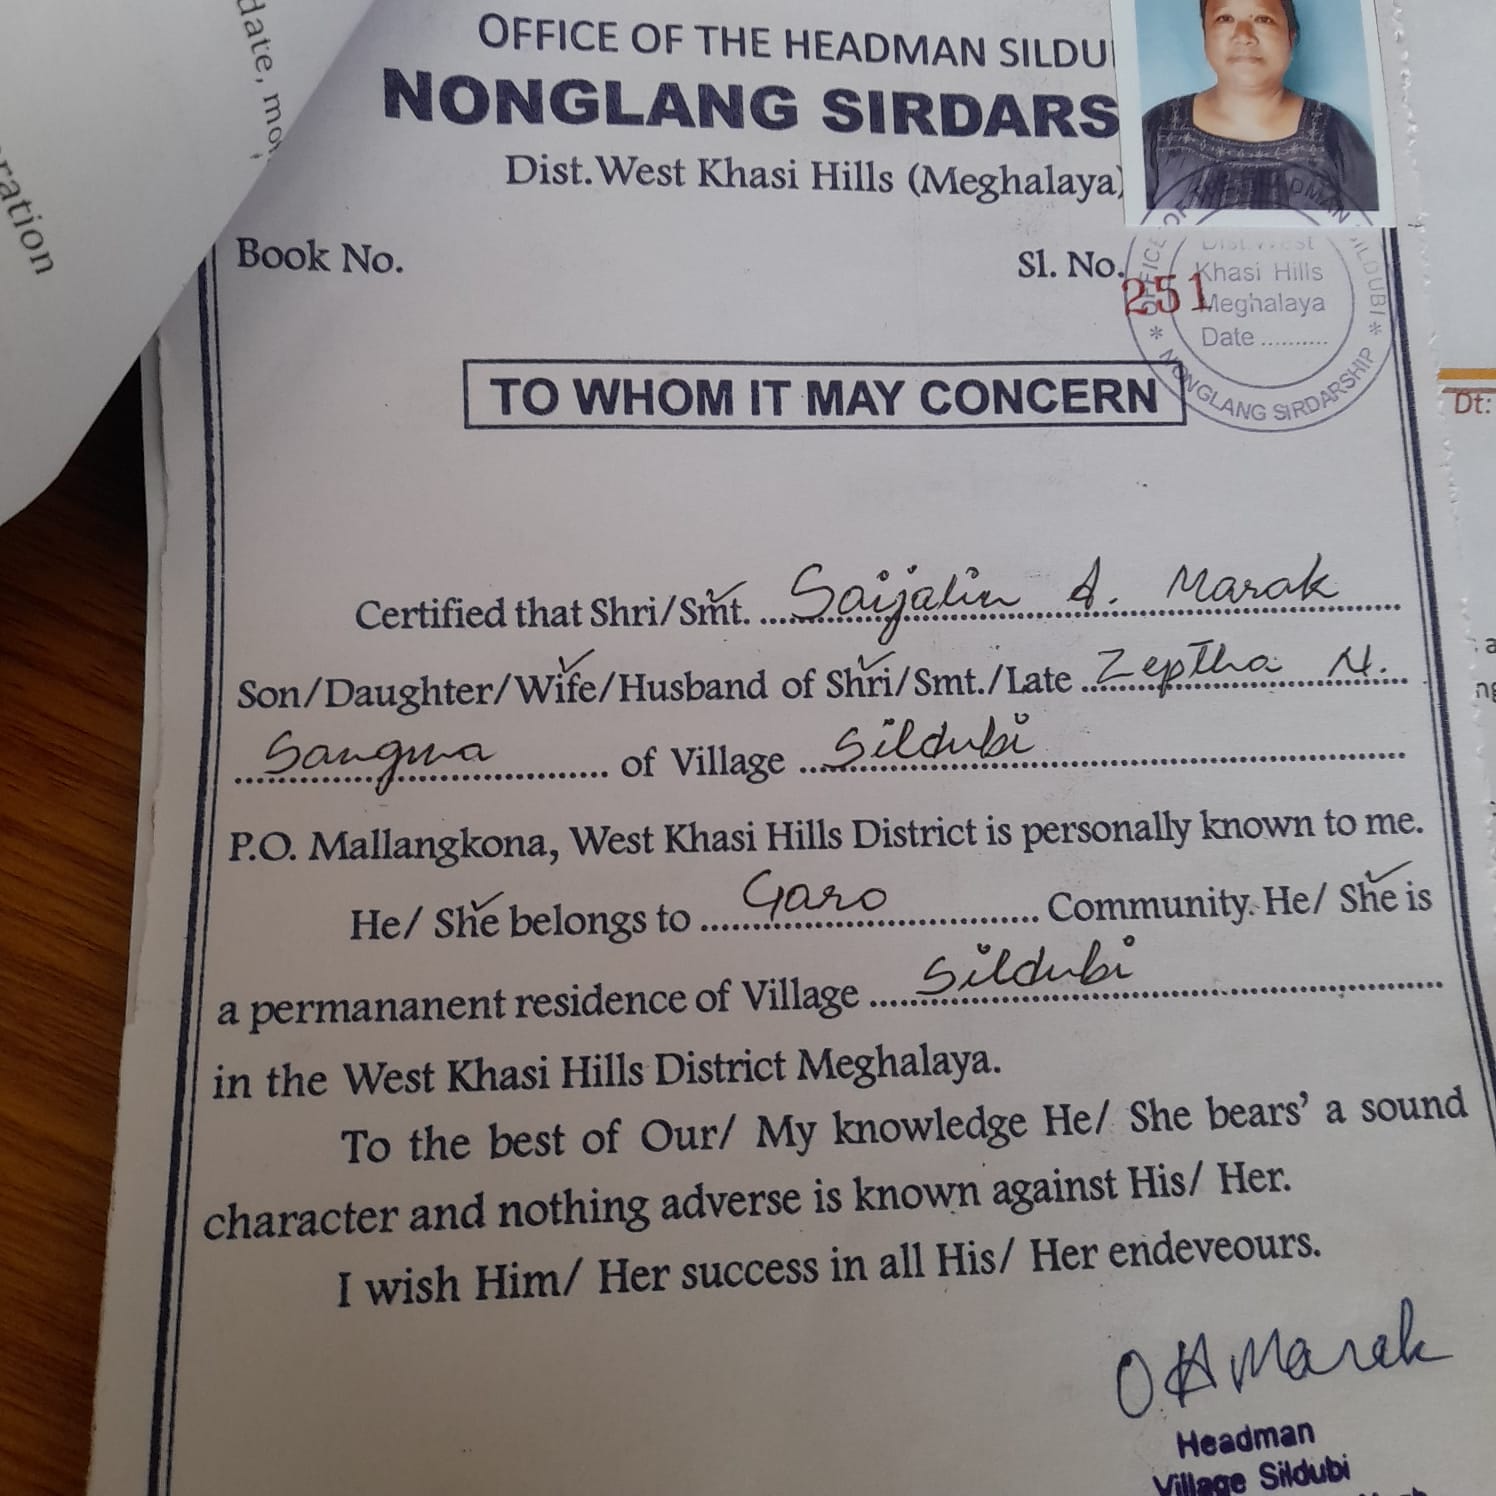 date, mo
ration
OFFICE OF THE HEADMAN SILDU
NONGLANG SIRDARS
Dist. West Khasi Hills (Meghalaya)
Book No.
Sl. No. 251
OFFICE OF THE HEADMAN SILDUBI
Dist. West
Khasi Hills
Meghalaya
Date ..........
* NONGLANG SIRDARSHIP *
Dt:
TO WHOM IT MAY CONCERN
Certified that Shri/Smt. Saijalin A. Marak
Son/Daughter/Wife/Husband of Shri/Smt./Late Zeptha N.
Sangma of Village Sildubi
P.O. Mallangkona, West Khasi Hills District is personally known to me.
He/ She belongs to Garo Community. He/ She is
a permananent residence of Village Sildubi
in the West Khasi Hills District Meghalaya.
To the best of Our/ My knowledge He/ She bears' a sound
character and nothing adverse is known against His/ Her.
I wish Him/ Her success in all His/ Her endeveours.
O A Marak
Headman
Village Sildubi